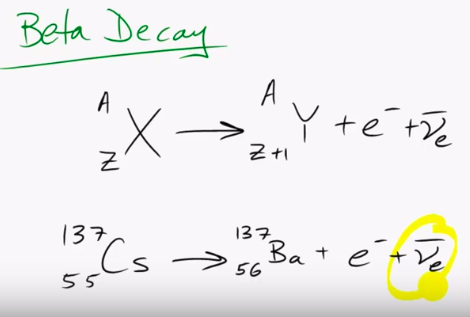 Beta Decay
ᴬ_Z X → ᴬ_Z+1 Y + e⁻ + ν̄ₑ
¹³⁷₅₅Cs → ¹³⁷₅₆Ba + e⁻ + ν̄ₑ